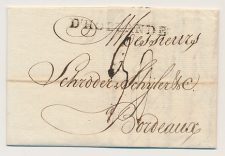 D'HOLLANDE
Messieurs
Schröder & Schÿler & C.
Bordeaux